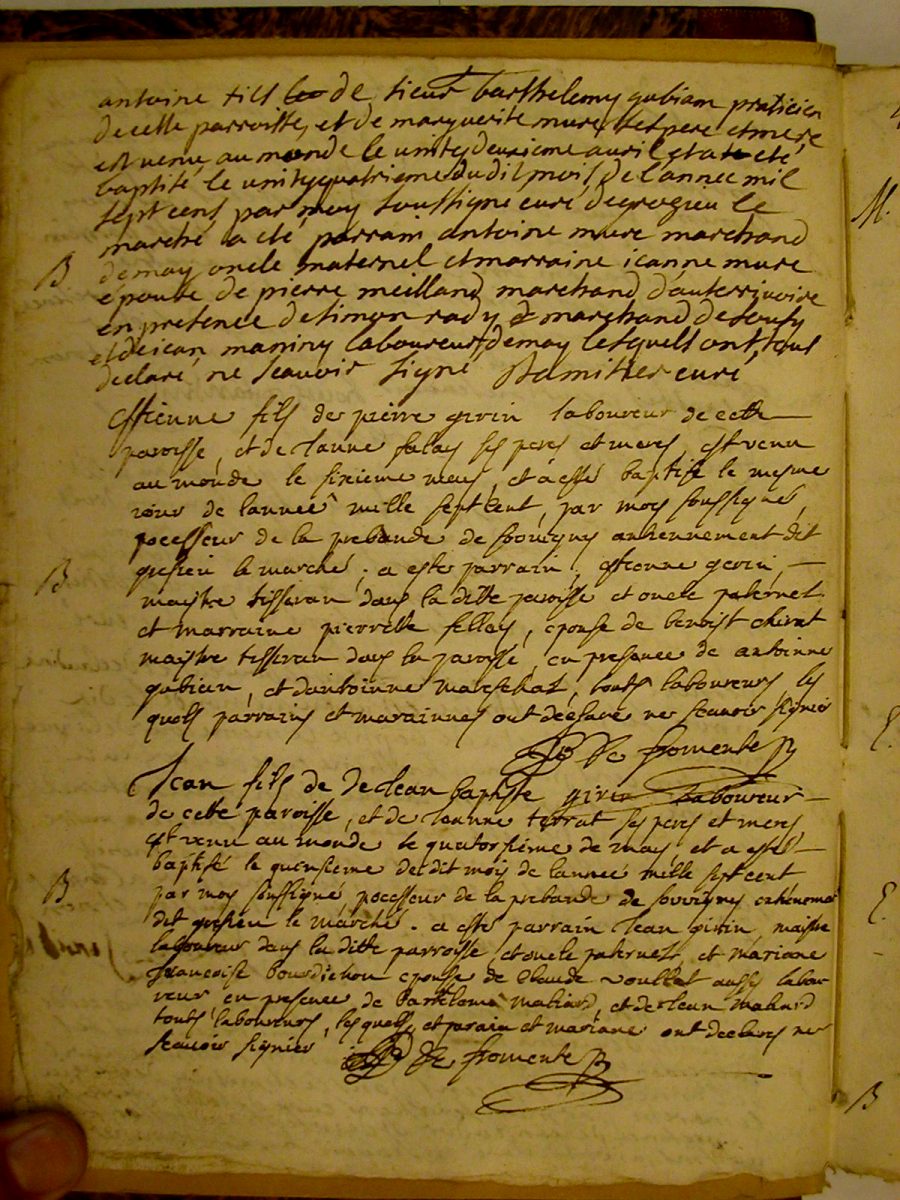 antoine fils de sieur barthelemy gubian praticien
de cette parroisse, et de marguerite mure, ses pere et mere,
est venu au monde le vintedeuxieme auril et a été
baptisé le vintequatrieme dudit mois de l'annee mil
sept cens, par moy soussigné curé de grezieu le
marché a été parrain antoine mure marchand
demay oncle maternel et marraine ieanne mure
B
épouse de pierre meilland marchand d'auterrivoire
en presence de simon rady marchand de
et de iean maniny laboureur, demay lesquels ont, tous
declaré ne scauoir signé curé
Estienne fils de pierre girin laboureur de cette
paroisse, et de Janne falay ses peres et meres est venu
au monde le sixieme may, et a esté baptisé le mesme
iour de lannee mille sept cent, par moy soussigné,
pocesseur de la prebande de souvigny anhiennement dit
gresieu le marché, a este parrain, estienne gerin,
B
maistre tisseran dans la ditte paroisse et oncle paternel
et marraine pierrette fellay, epouse de benoist chirat
maistre tisseran dans la paroisse, en presence de antoinne
gubian, et dantoinne mareschal, touts laboureurs les
quels parrains et marainnes ont desclaré ne scauoir signier
De fromente
Jean fils de de Jean baptisse girin laboureur
de cette paroisse, et de Janne terrat ses peres et meres
est venu au monde le quatorsieme de may et a esté
baptisé le quinsieme de dit mois de lannee mille sept cent
B
par moy soussigné, pocesseur de la prebande de souvigny
dit gresieu le marché. a este parrain Jean girin, maistre
laboureur dans la ditte parroisse et oncle paternel, et mariane
francoise bourdichon epousse de Claude voullat aussy labou
reur, en presence de bartelome mahiard, et de Jean mahard
touts laboureurs, lesquels et parain et mariane ont declares ne
scauoir signier De fromente
M.
B